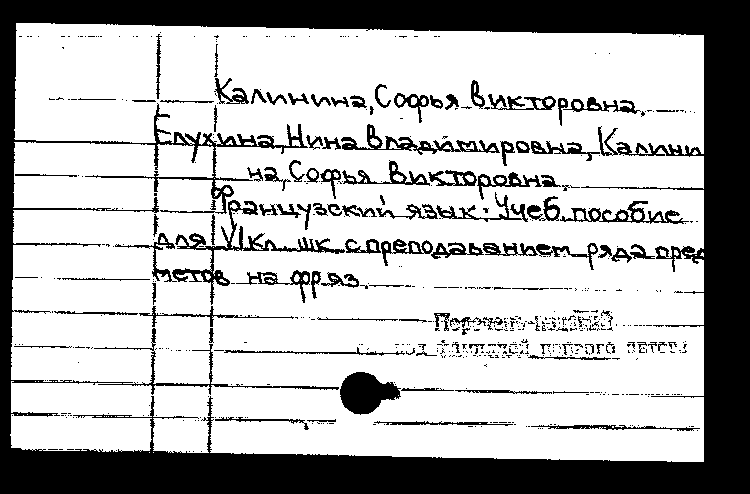 Калинина, Софья Викторовна.
Елухина, Нина Владимировна, Калини
на, Софья Викторовна.
Французский язык: Учеб. пособие
для VI кл. шк. с преподаванием ряда пред
метов на фр. яз.
Перечень изданий
см. под фамилией первого автора